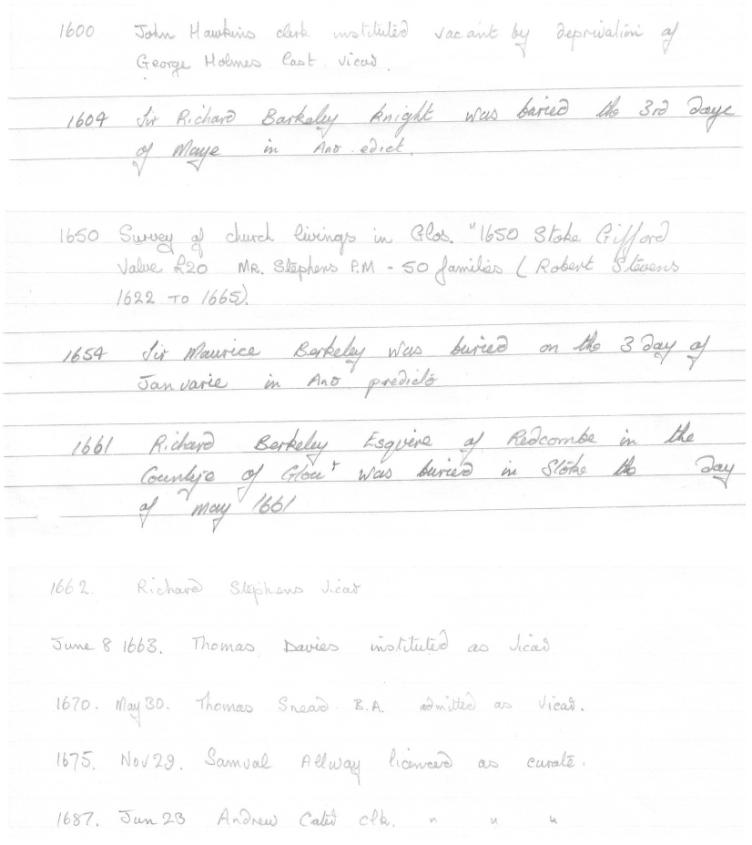 1600 John Hawkins clerk instituted vacant by deprivation of
George Holmes last vicar.
1604 Sir Richard Barkeley Knight was buried the 3rd daye
of Maye in Ano edict.
1650 Survey of church livings in Glos. "1650 Stoke Gifford
Value £20 MR. Stephens P.M - 50 families (Robert Stevens
1622 TO 1665).
1654 Sir Maurice Berkeley was buried on the 3 day of
Januarie in Ano predicto
1661 Richard Berkeley Esquire of Redcombe in the
Countye of Glouʳ was buried in Stoke the day
of may 1661
1662. Richard Stephens vicar
June 8 1663. Thomas Davies instituted as vicar
1670. May 30. Thomas Snead B.A. admitted as vicar.
1675. Nov 29. Samual Allway licenced as curate.
1687. Jun 23 Andrew Cated clk. " " "